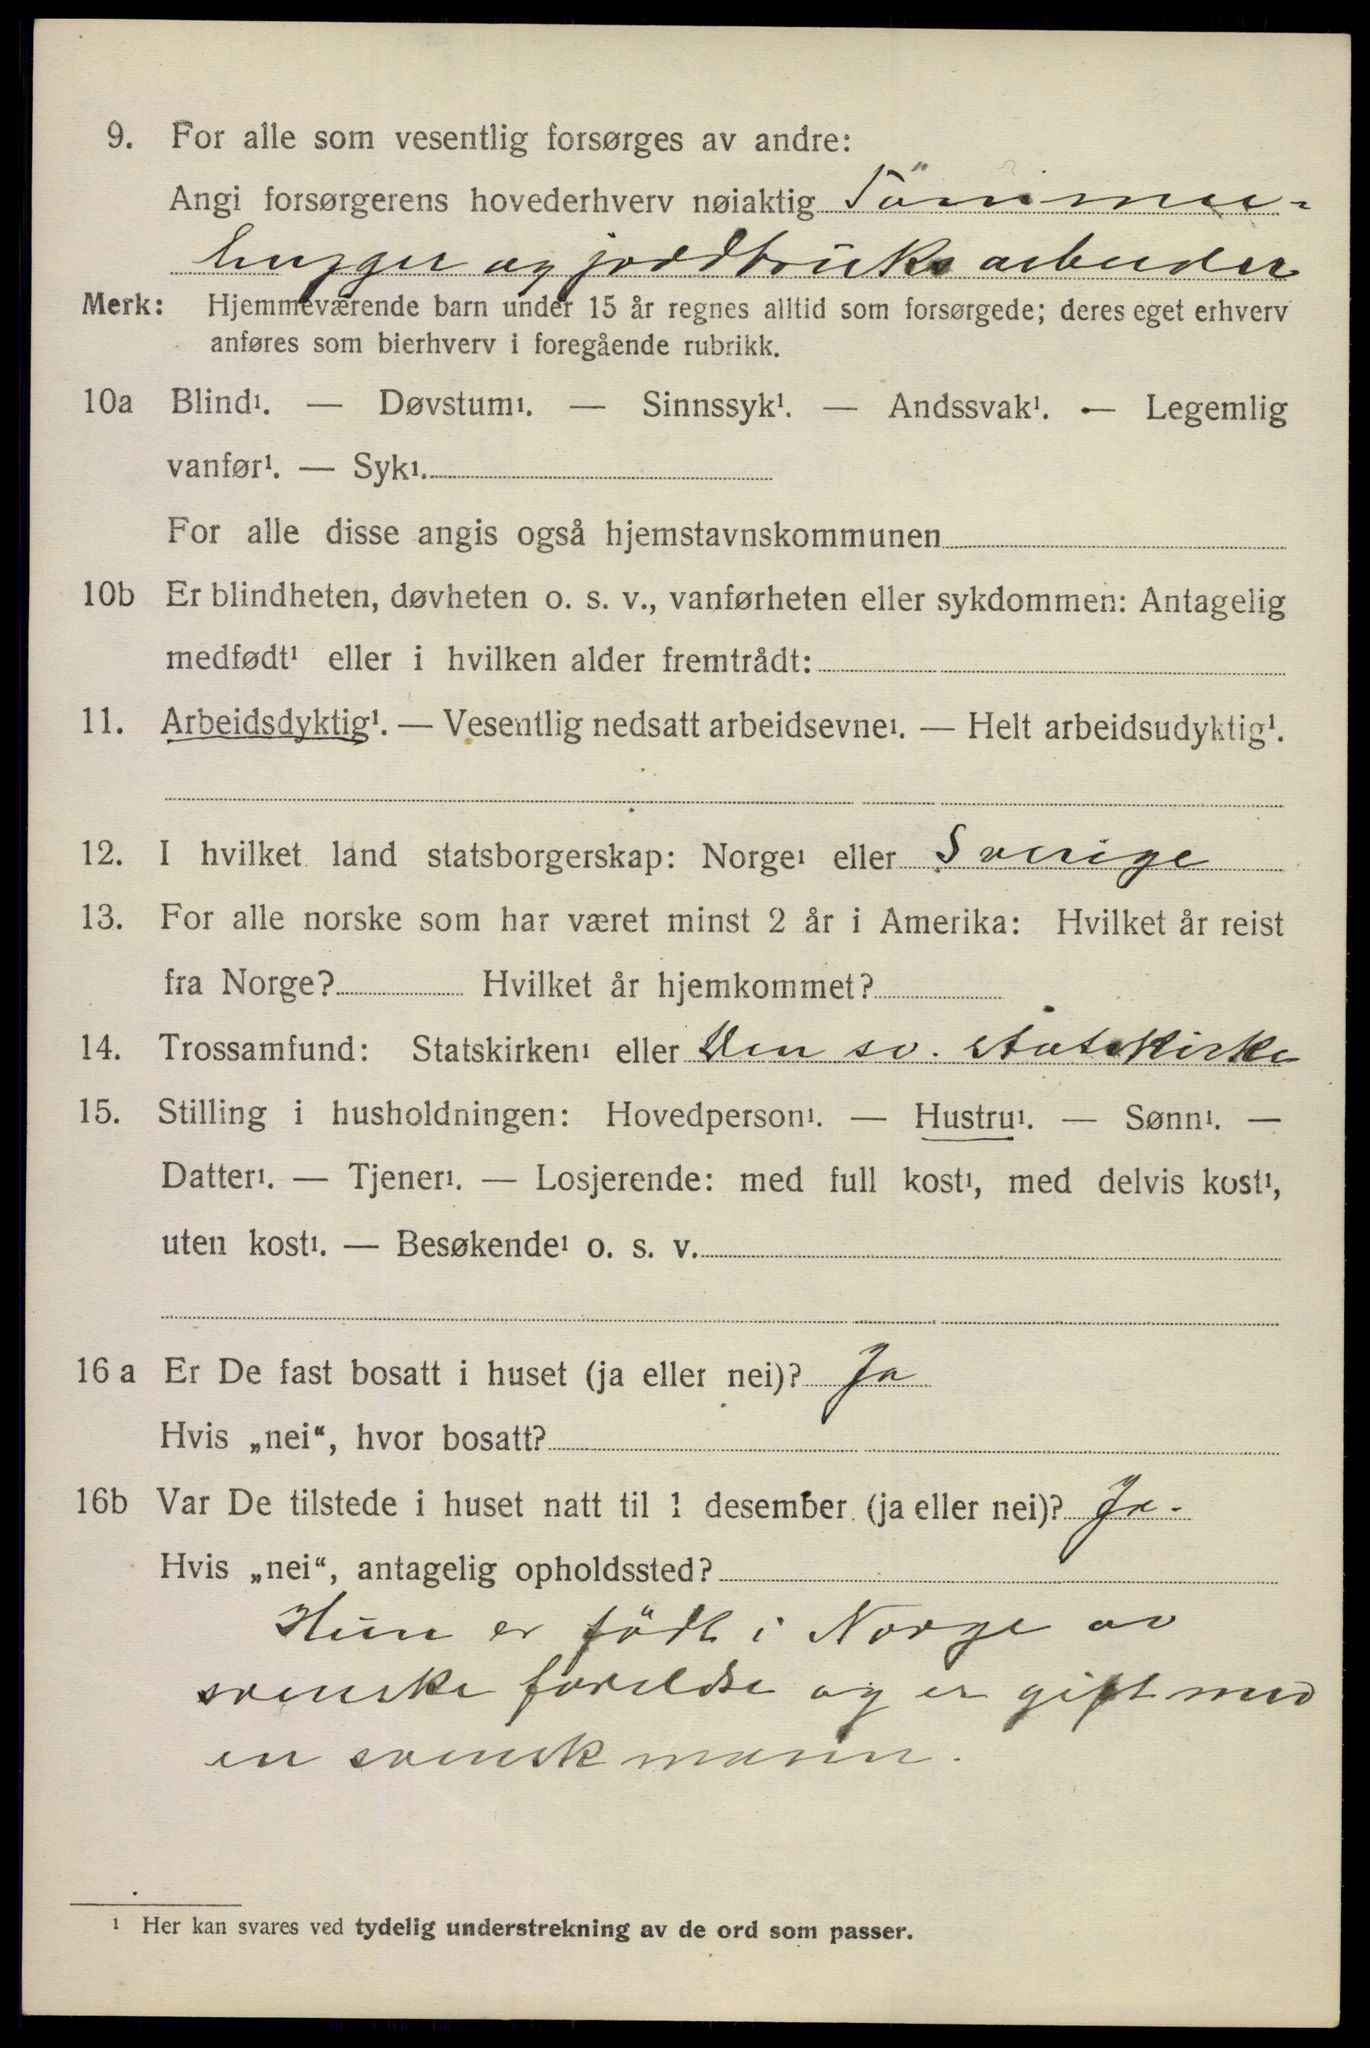 9. For alle som vesentlig forsørges av andre:
Angi forsørgerens hovederhverv nøiaktig Tömmer-
hugger og jordbruks arbeider
Merk: Hjemmeværende barn under 15 år regnes alltid som forsørgede; deres eget erhverv
anføres som bierhverv i foregående rubrikk.
10a Blind¹. — Døvstum¹. — Sinnssyk¹. — Andssvak¹. — Legemlig
vanfør¹. — Syk¹.
For alle disse angis også hjemstavnskommunen
10b Er blindheten, døvheten o. s. v., vanførheten eller sykdommen: Antagelig
medfødt¹ eller i hvilken alder fremtrådt:
11. Arbeidsdyktig¹. — Vesentlig nedsatt arbeidsevne¹. — Helt arbeidsudyktig¹.
12. I hvilket land statsborgerskap: Norge¹ eller Sverige
13. For alle norske som har været minst 2 år i Amerika: Hvilket år reist
fra Norge? Hvilket år hjemkommet?
14. Trossamfund: Statskirken¹ eller Den sv. statskirke
15. Stilling i husholdningen: Hovedperson¹. — Hustru¹. — Sønn¹. —
Datter¹. — Tjener¹. — Losjerende: med full kost¹, med delvis kost¹,
uten kost¹. — Besøkende¹ o. s. v.
16 a Er De fast bosatt i huset (ja eller nei)? Ja
Hvis „nei“, hvor bosatt?
16b Var De tilstede i huset natt til 1 desember (ja eller nei)? Ja.
Hvis „nei“, antagelig opholdssted?
Hun er födt i Norge av
svenske foreldre og er gift med
en svensk mann.
¹ Her kan svares ved tydelig understrekning av de ord som passer.